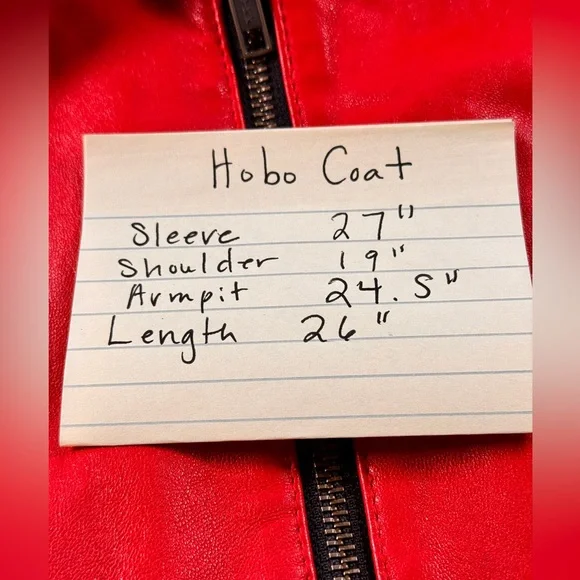 Hobo Coat
Sleeve 27"
Shoulder 19"
Armpit 24.5"
Length 26"